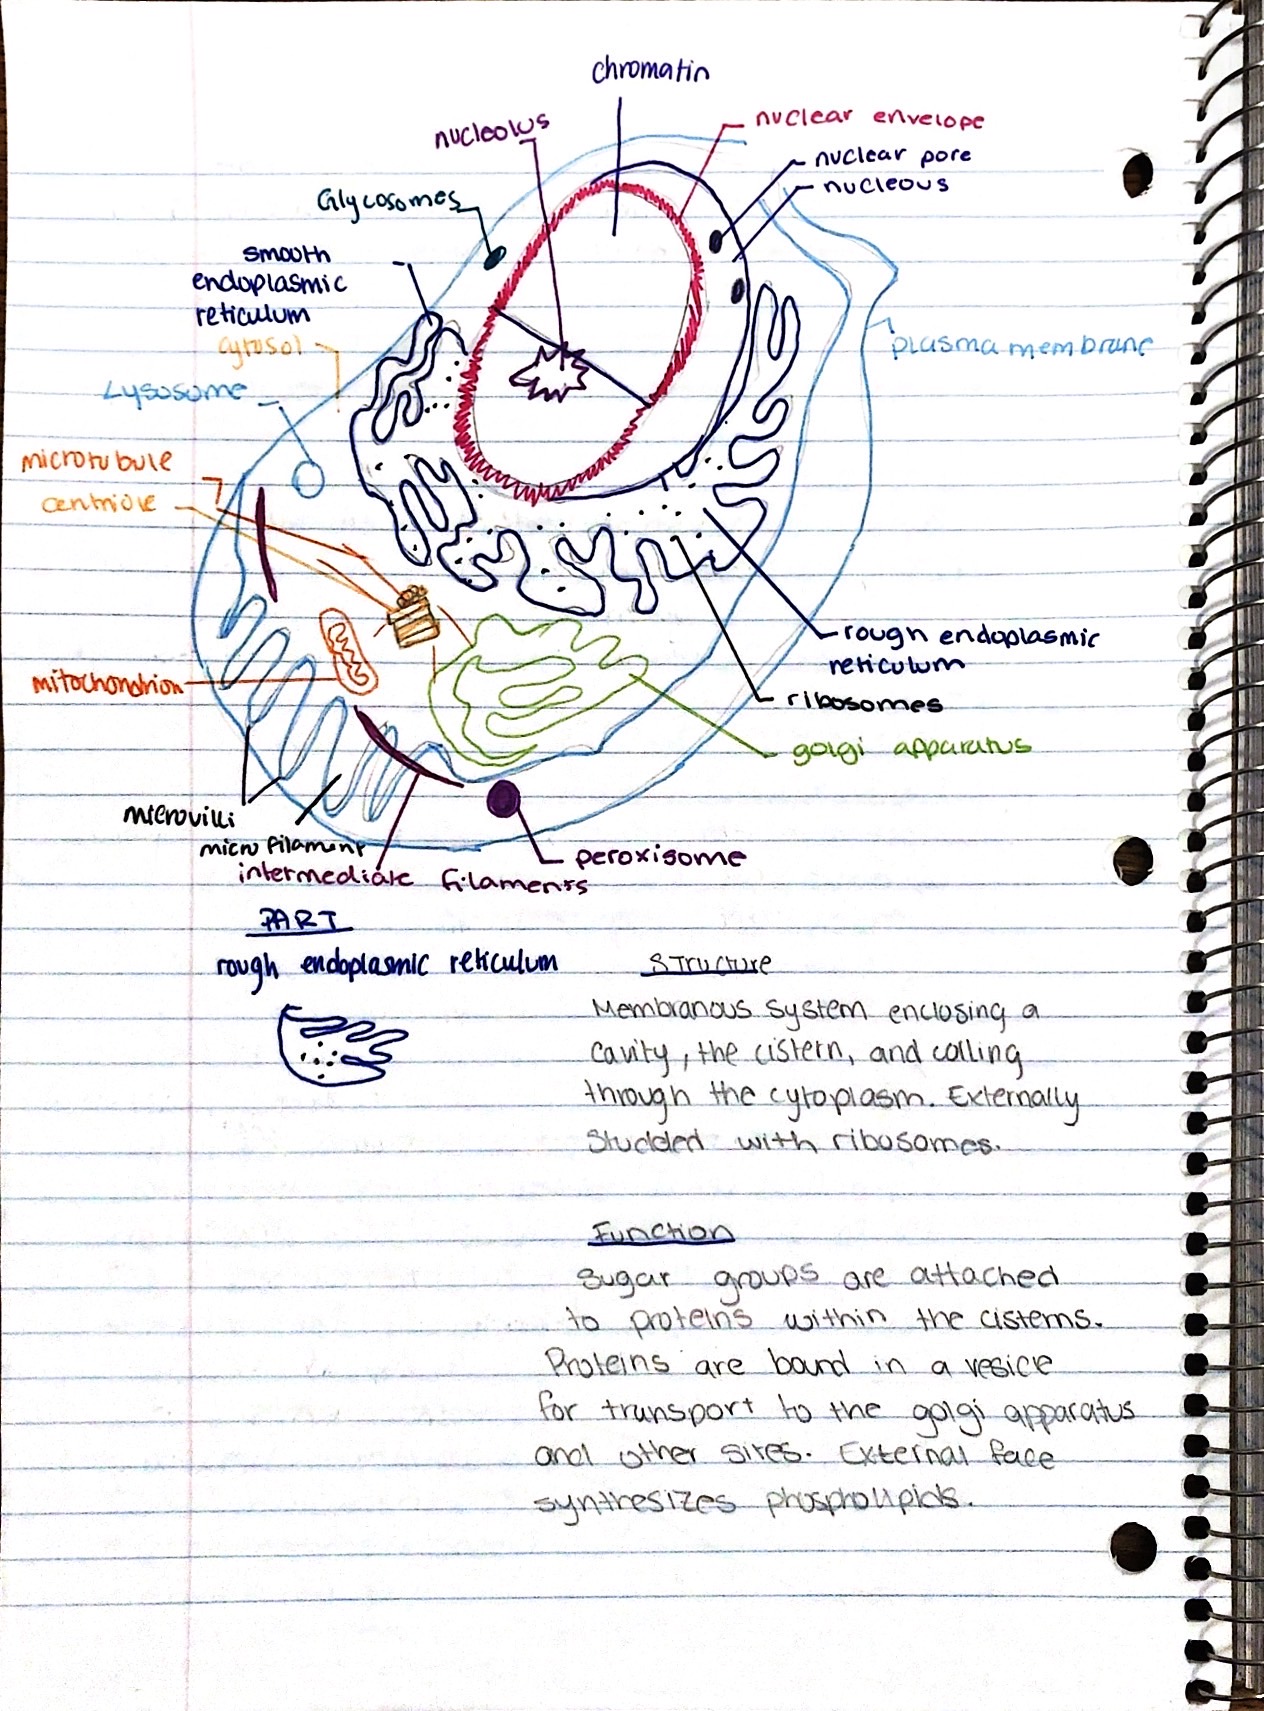 chromatin
nucleolus
nuclear envelope
nuclear pore
nucleous
Glycosomes
smooth
endoplasmic
reticulum
cytosol
plasma membrane
Lysosome
microtubule
centriole
rough endoplasmic
reticulum
mitochondrion
ribosomes
golgi apparatus
microvilli
micro filament
peroxisome
intermediate filaments
PART
rough endoplasmic reticulum
Structure
Membranous system enclosing a
cavity, the cistern, and coiling
through the cytoplasm. Externally
studded with ribosomes.
Function
Sugar groups are attached
to proteins within the cisterns.
Proteins are bound in a vesicle
for transport to the golgi apparatus
and other sites. External face
synthesizes phospholipids.